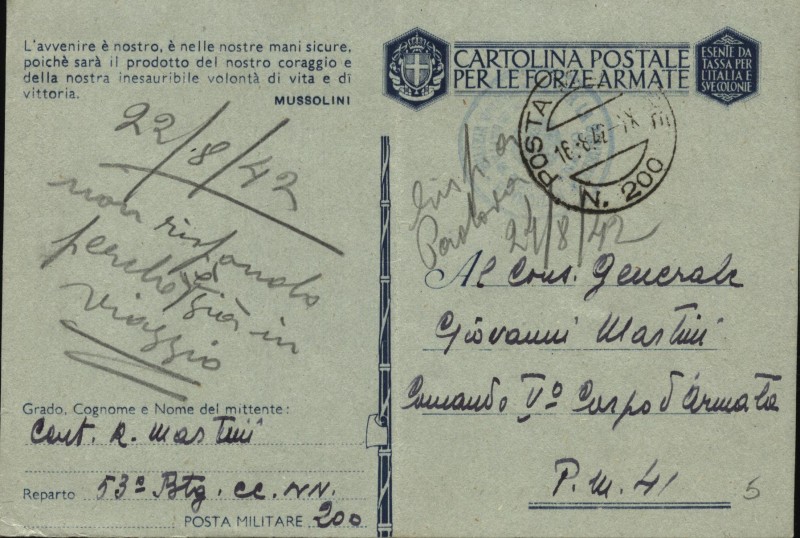 L'avvenire è nostro, è nelle nostre mani sicure,
poichè sarà il prodotto del nostro coraggio e
della nostra inesauribile volontà di vita e di
vittoria.
MUSSOLINI
22/8/42
non rispondo
perchè già in
viaggio
Grado, Cognome e Nome del mittente:
Cent. R. Martini
Reparto 53° Btg. CC. NN.
POSTA MILITARE 200
CARTOLINA POSTALE
PER LE FORZE ARMATE
ESENTE DA
TASSA PER
L'ITALIA E
SUE COLONIE
POSTA
16.8.42
N. 200
Padova
24/8/42
Al Cons. Generale
Giovanni Martini
Comando V° Corpo d'Armata
P.M. 41
5